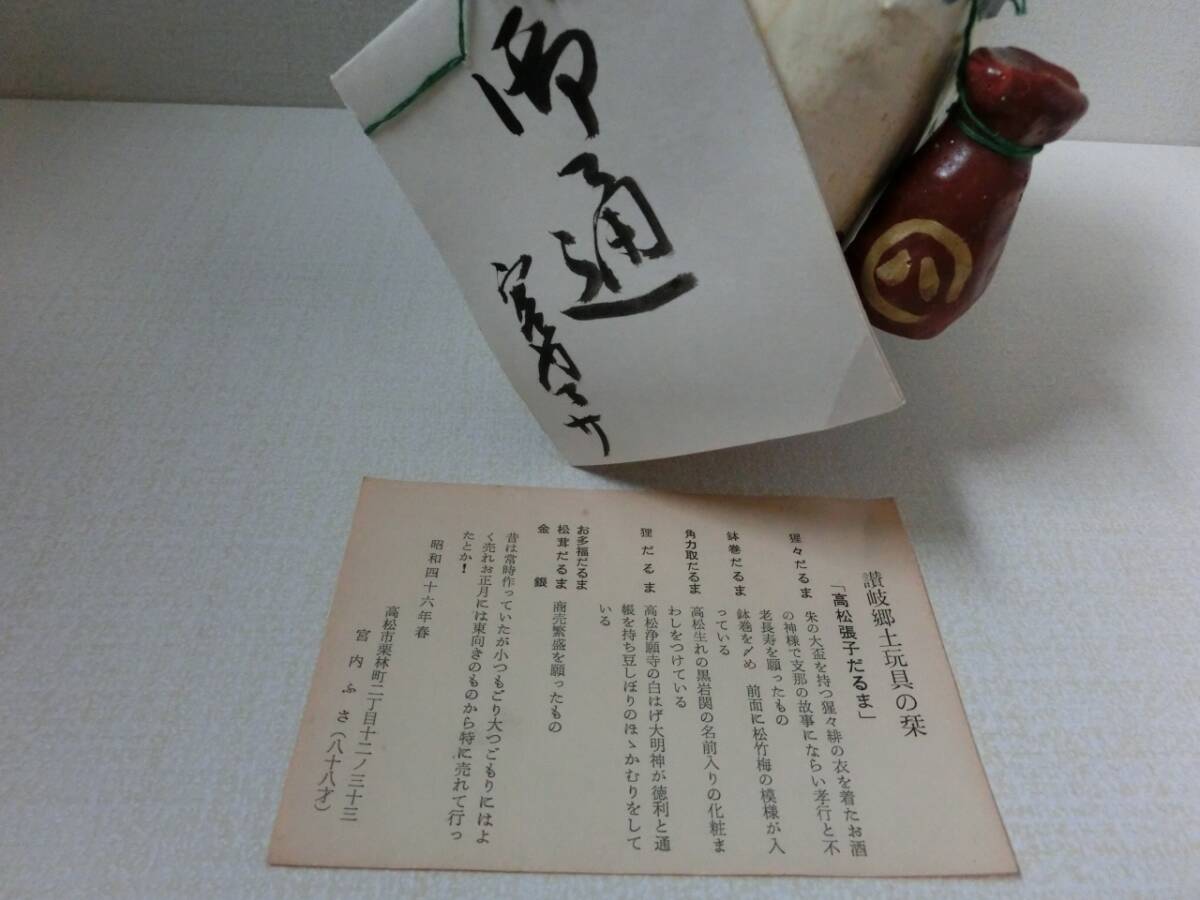 御通
八
讃岐郷土玩具の栞
「高松張子だるま」
猩々だるま 朱の大盃を持つ猩々緋の衣を着たお酒
の神様で支那の故事にならい孝行と不
老長寿を願ったもの
鉢巻だるま 鉢巻を〆め 前面に松竹梅の模様が入
っている
角力取だるま 高松生れの黒岩関の名前入りの化粧ま
わしをつけている
狸だるま 高松浄願寺の白はげ大明神が徳利と通
帳を持ち豆しぼりのほゝかむりをして
いる
お多福だるま
松茸だるま 商売繁盛を願ったもの
金銀
昔は常時作っていたが小つもどり大つごもりにはよ
く売れお正月には東向きのものから特に売れて行っ
たとか!
昭和四十六年春
高松市栗林町二丁目十二ノ三十三
宮内ふさ(八十八才)